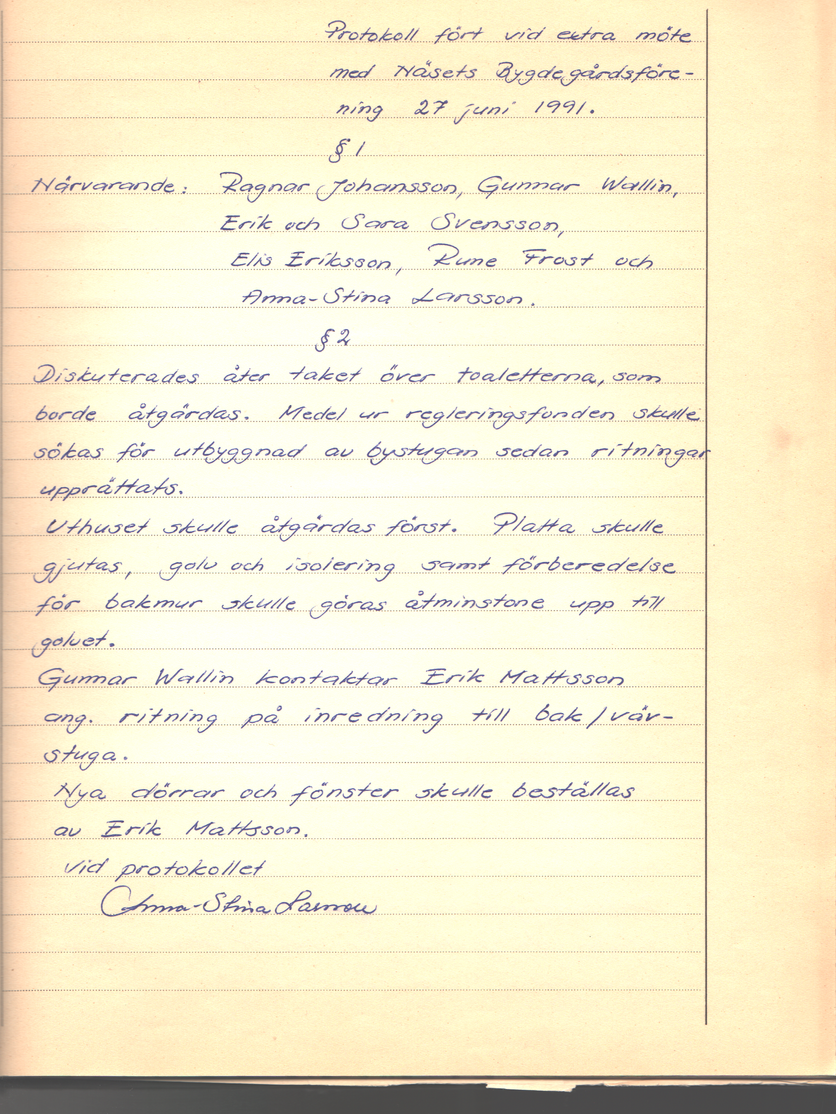 Protokoll fört vid extra möte
med Näsets Bygdegårdsföre-
ning 27 juni 1991.
§ 1
Närvarande: Ragnar Johansson, Gunnar Wallin,
Erik och Sara Svensson,
Elis Eriksson, Rune Frost och
Anna-Stina Larsson.
§ 2
Diskuterades åter taket över toaletterna, som
borde åtgärdas. Medel ur regleringsfonden skulle
sökas för utbyggnad av bystugan sedan ritningar
upprättats.
Uthuset skulle åtgärdas först. Platta skulle
gjutas, golv och isolering samt förberedelse
för bakmur skulle göras åtminstone upp till
golvet.
Gunnar Wallin kontaktar Erik Mattsson
ang. ritning på inredning till bak/väv-
stuga.
Nya dörrar och fönster skulle beställas
av Erik Mattsson.
Vid protokollet
Anna-Stina Larsson